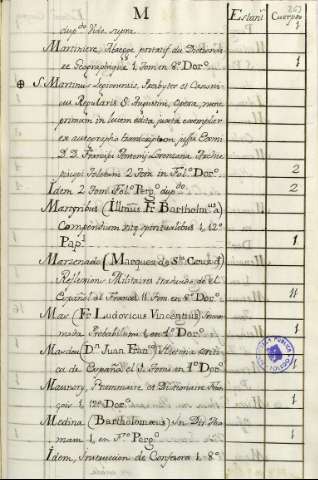 M
Estanᵗ Cuerpos
dupᵈᵒ Vide supra 1
Martiniere, Abregé portatif du Dictionaire
Geographique 1 Tom en 8º Dorº 1
S. Martinus Legionensis, Presbyter et Canonicus
Regularis S. Augustini, Opera, nunc
primum in lucem edita, juxta exemplar
ex autographo transcriptum jussu Exmi
D. D. Francisci Antonij Lorenzana Archiepiscopi
Toletani 2 Tom in Folº Dorº 2
Idem 2 Tom Folº Pergº dupᵈᵒ 2
Margribus (Illmus Fr Bartholmus a)
Compendium spiritualibus 1, 12º
Papˡ 1
Marzenado (Marques de Sᵗᵃ Cruz d)
Reflexions Militaires traduido de el
Español al Francés 11 Tom en 8º Dorº 11
Mas (Fr Ludovicus Vincentius)
Probabilium 1, en 4º Dorº 1
Masdeu (Dⁿ Juan Franᶜᵒ) Historia critica
de España el 1 Tomo en 4º Dorº 1
Maunory, Grammaire et Dictionaire François
1, 12º Dorº 1
Medina (Bartholomaeus) In Div Thomam
1, en Fº Pergº 1
Idem, Instruccion de Confesores 1, 8º